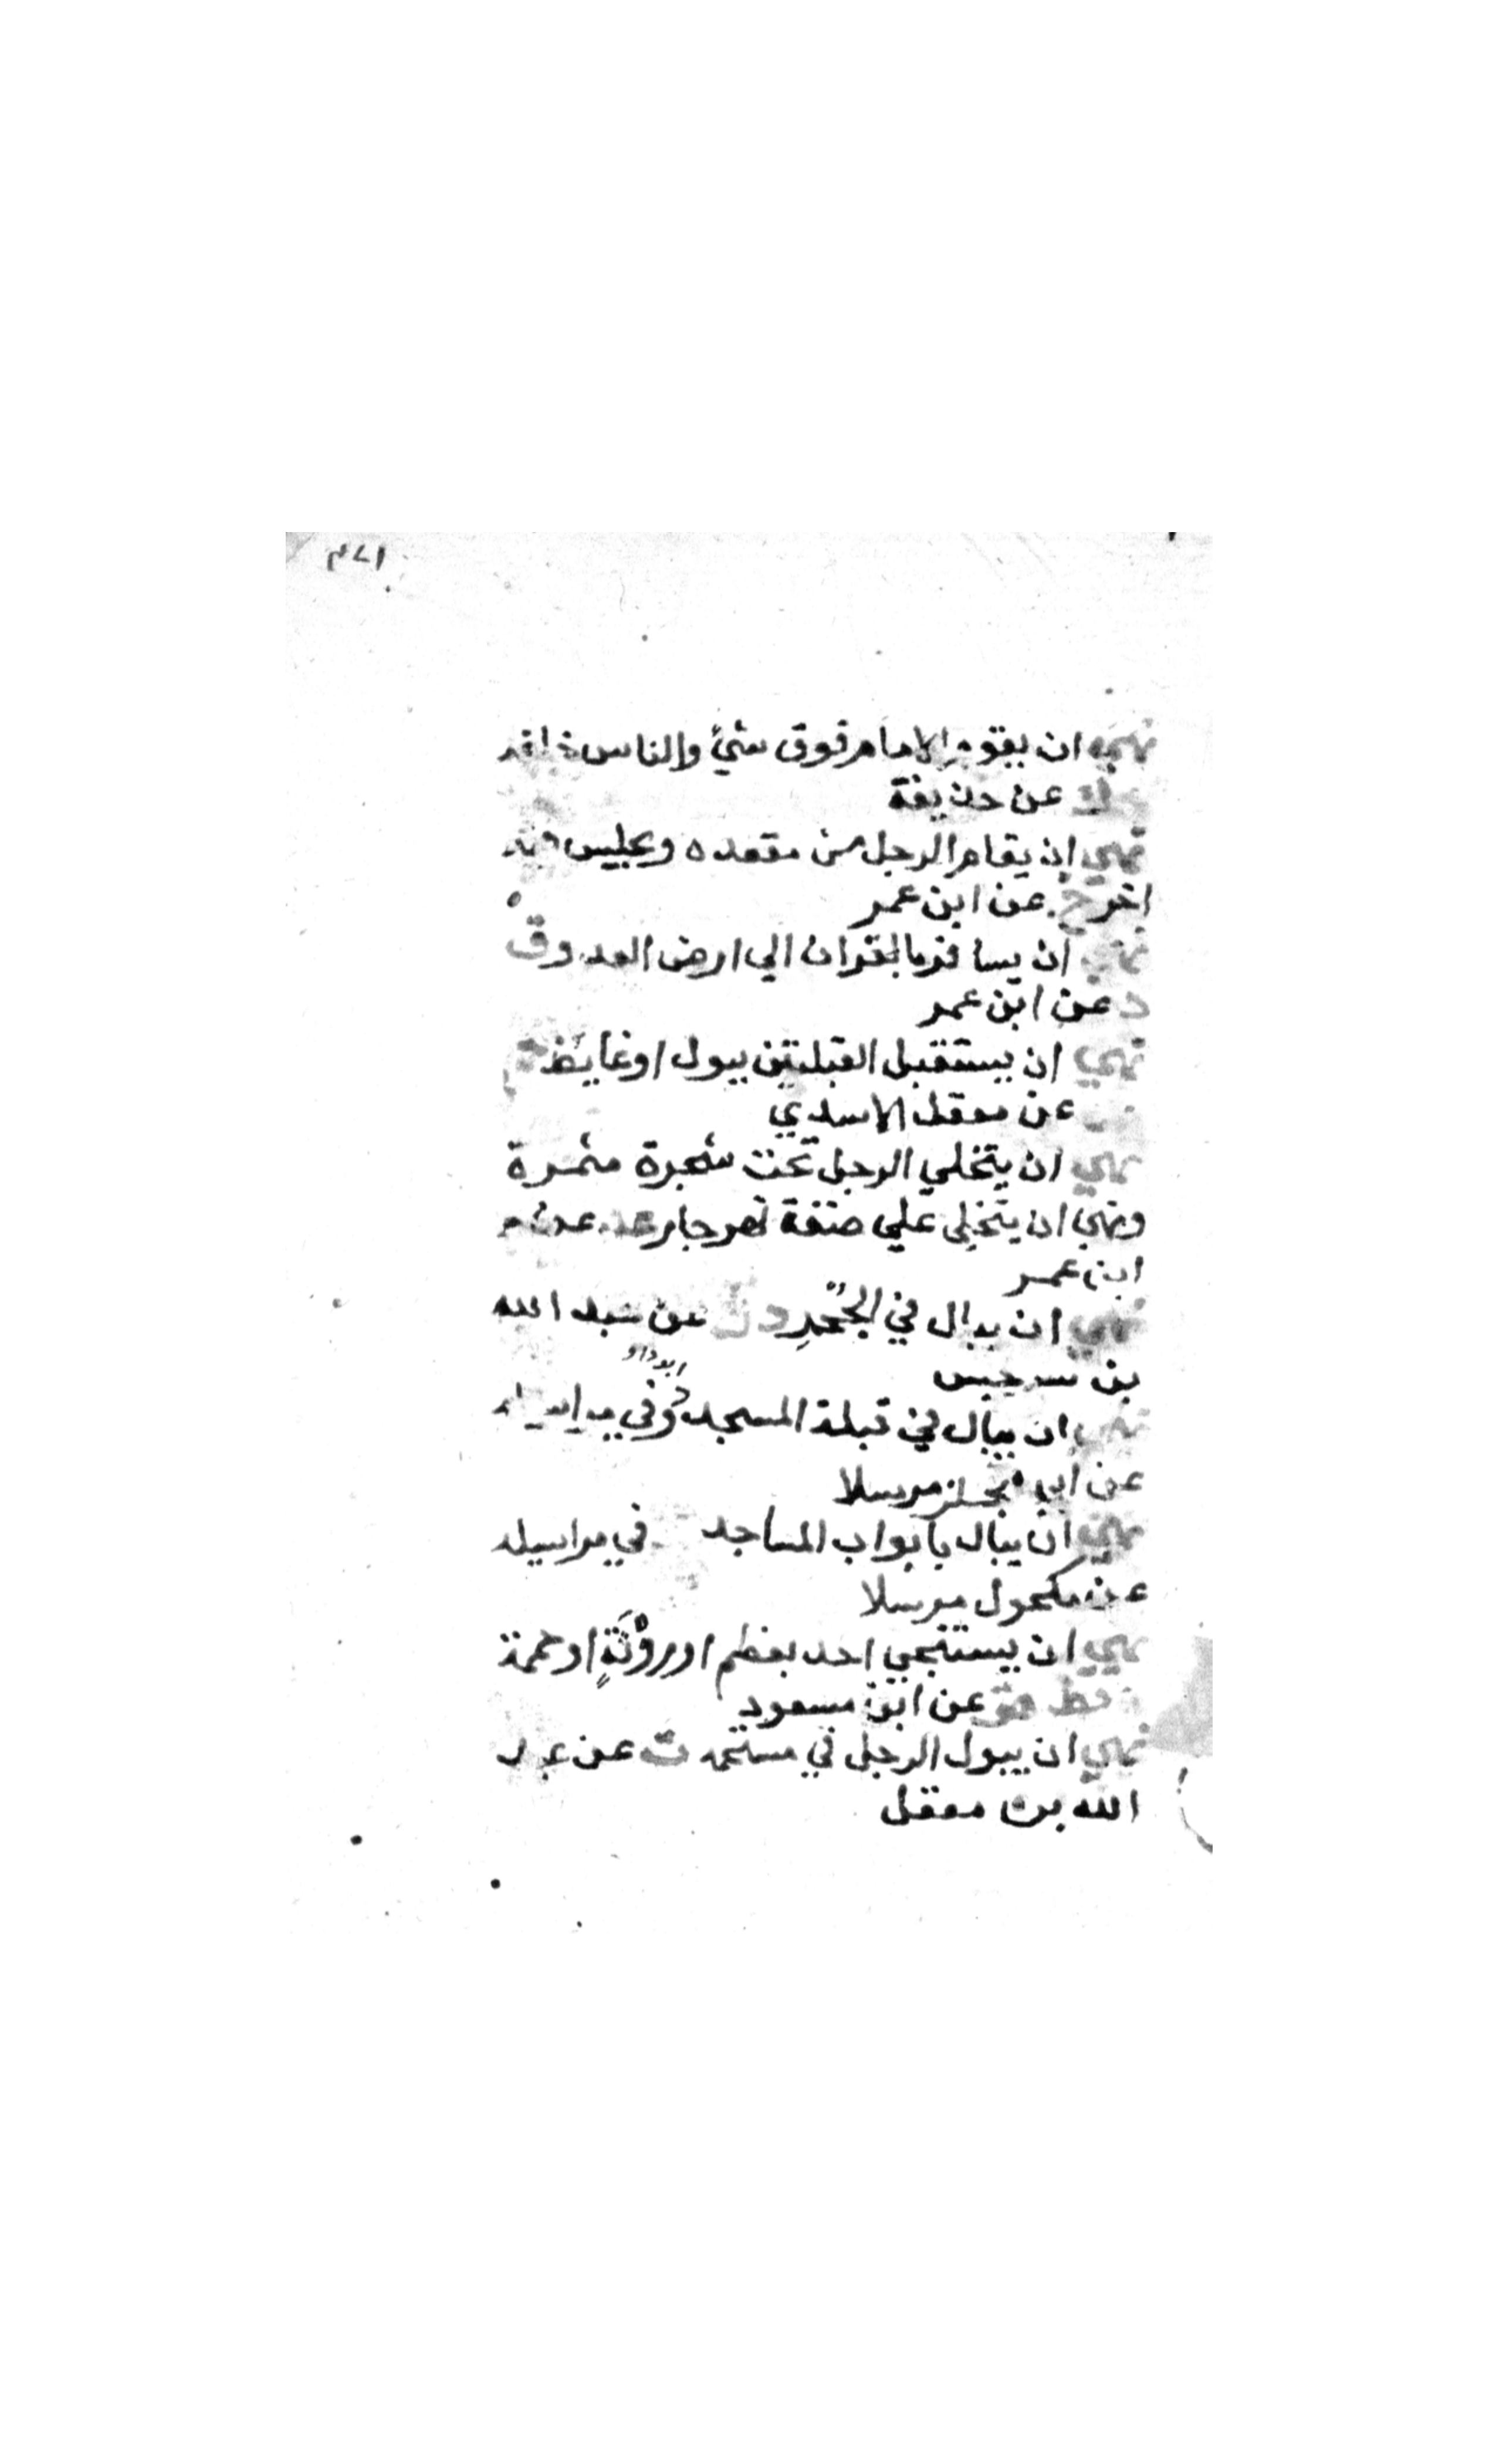 ١٧٣
نهي ان يقوم الامام فوق شيءً والناس خلفه
ك عن حذيفة
نهي ان يقام الرجل من مقعده ويجلس فيه
اخر خ عن ابن عمر
نهي ان يسافر بالقران الي ارض العدو ق
د عن ابن عمر
نهي ان يستقبل القبلتين ببول او غايط
عن معقل الاسدي
نهي ان يتخلي الرجل تحت شجرة مثمرة
ونهي ان يتخلى علي ضفة نهر جار عد عن
ابن عمر
نهي ان يبال في الجُحْرِ د ن عن عبد الله
بن سرجس
نهي ان يبال في قبلة المسجد د وفي مراسيله
ابوداود
عن ابي مجلز مرسلا
نهي ان يبال بابواب المساجد في مراسيله
عن مكحول مرسلا
نهي ان يستنجي احد بعظم او روْثَةٍ او حممة
قط هق عن ابن مسعود
نهي ان يبول الرجل في مستحمه ت عن عبد
الله بن مغفل